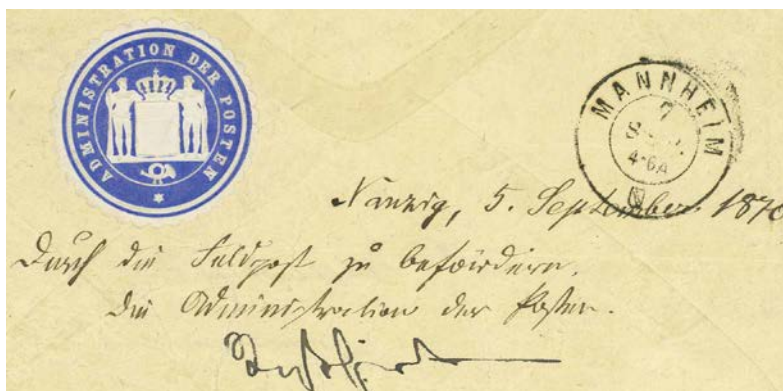 ADMINISTRATION DER POSTEN
MANNHEIM
7
4-6A
Nanzig, 5. September 1870
Durch die Feldpost zu befördern.
Die Administration der Posten.